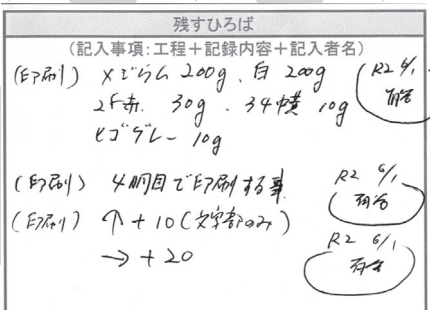 残すひろば
(記入事項:工程+記録内容+記入者名)
(印刷) メジウム 200g、白 200g
30g、34横 10g
グレー 10g
R2 6/1
(印刷) 4胴目で印刷する事
R2 6/1
(印刷) ↑+10(文字部のみ)
→+20
R2 6/1